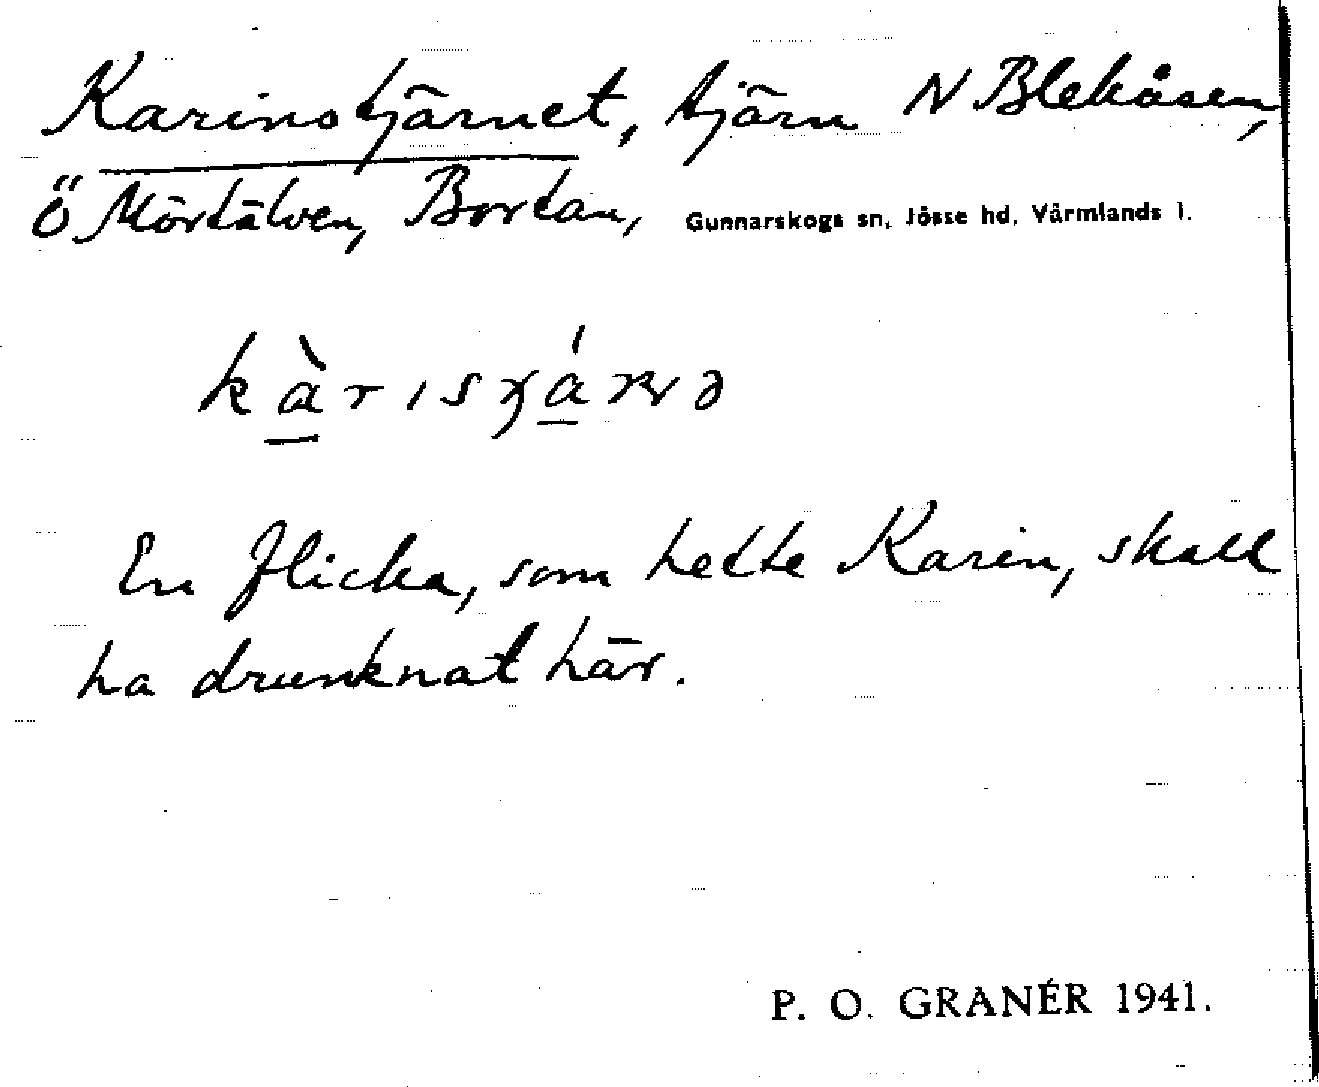 Karinstjärnet, tjärn N Blekåsen,
Ö Mörtälven, Bortan, Gunnarskogs sn, Jösse hd, Värmlands l.
En flicka, som hette Karin, skall
ha drunknat här.
P. O. GRANÉR 1941.